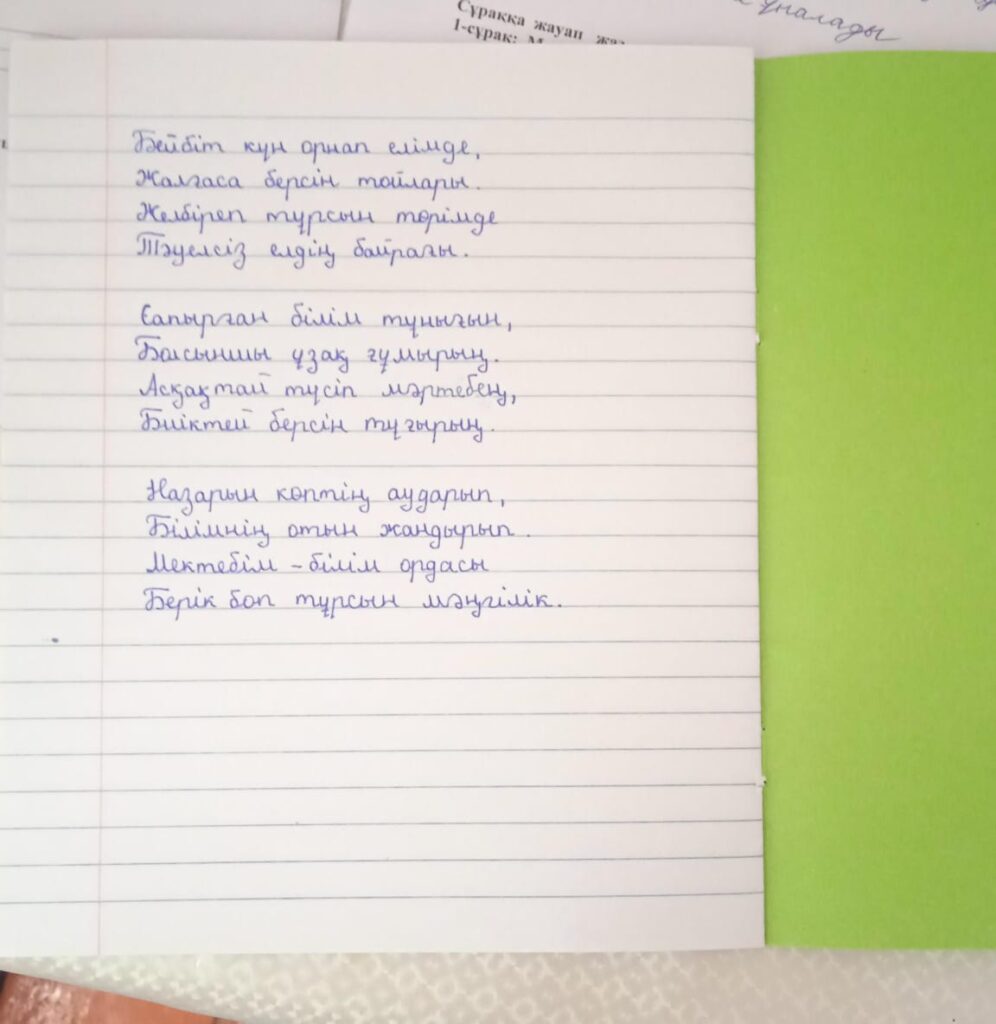 Сұраққа жауап
1-сұрақ:
ұналады
Бейбіт күн орнап елімде,
Жалғаса берсін тойлары.
Желбіреп тұрсын төрімде
Тәуелсіз елдің байрағы.
Сапырған білім тұнығын,
Басыншы ұзақ ғұмырың.
Асқақтай түсіп мәртебең,
Биіктей берсін тұғырың.
Назарын көптің аударып,
Білімнің отын жандырып.
Мектебім - білім ордасы
Берік боп тұрсын мәңгілік.